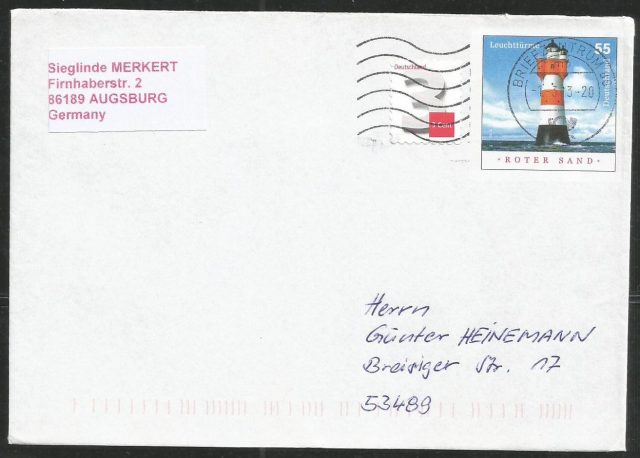 Sieglinde MERKERT
Firnhaberstr. 2
86189 AUGSBURG
Germany
Deutschland
3 Cent
Leuchttürme
55
Deutschland
BRIEFZENTRUM
ROTER SAND
Herrn
Günter HEINEMANN
Breisiger Str. 17
53489